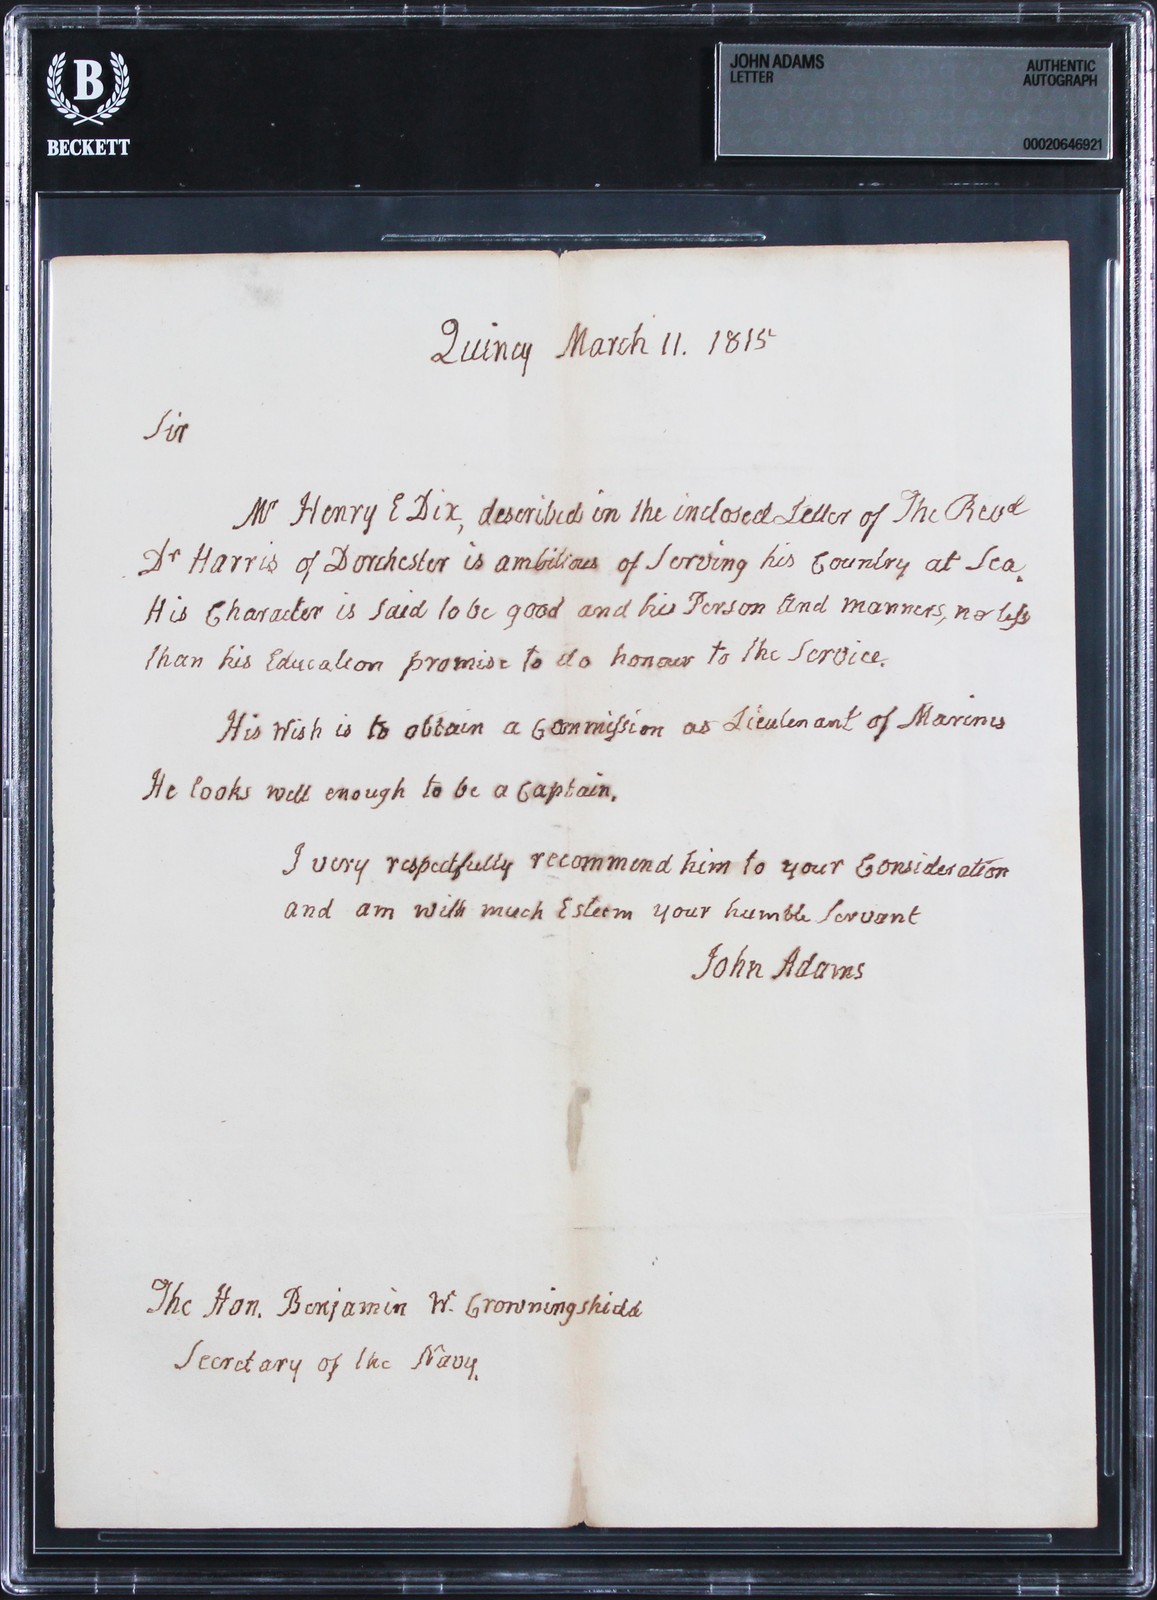 B
BECKETT
JOHN ADAMS
LETTER
AUTHENTIC
AUTOGRAPH
00020646921
Quincy March 11. 1815
Sir
Mr Henry E Dix, described in the inclosed Letter of The Revd
Dr Harris of Dorchester is ambitious of Serving his Country at Sea.
His Character is Said to be good and his Person and manners, no less
than his Education promise to do honour to the Service.
His Wish is to obtain a Commission as Lieutenant of Marines
He looks well enough to be a Captain.
I very respectfully recommend him to your Consideration
and am with much Esteem your humble Servant
John Adams
The Hon. Benjamin W. Crowningshield
Secretary of the Navy.